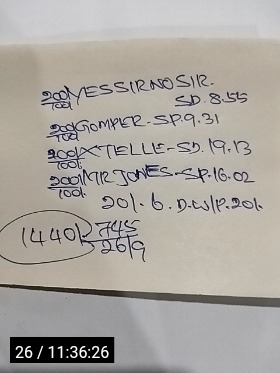 200/100 YESSIRNOSIR.
SD.8.55
200/100 GOMPER-SP.9.31
200/100 XTELLE-SD.19.13
200/100 MR JONES-SP.16.02
20/.6.D.W/P.20/.
1440/ 745
2619
26 / 11:36:26